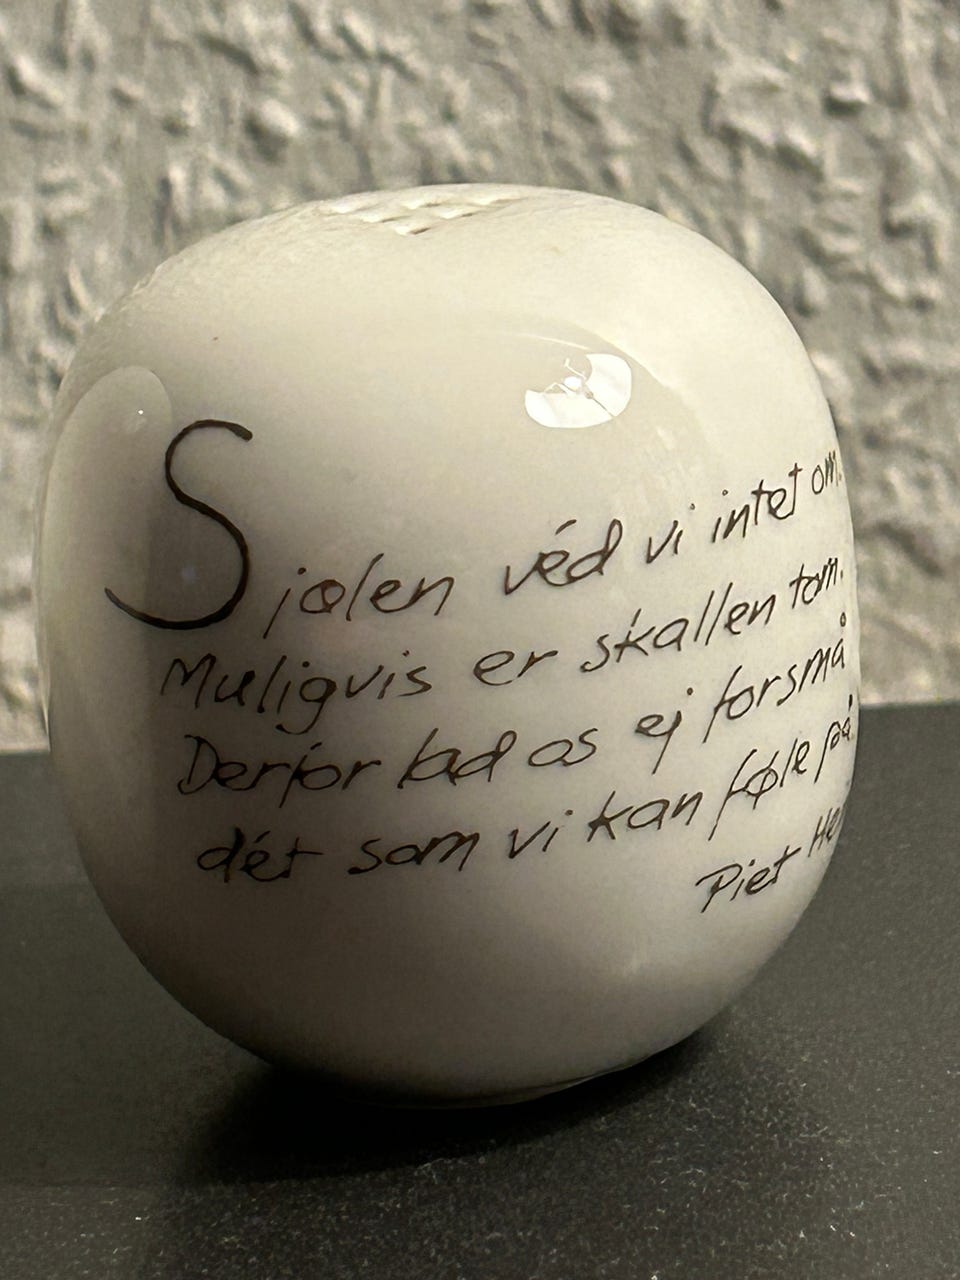 Sjælen véd vi intet om.
Muligvis er skallen tom.
Derfor lad os ej forsmå
dét som vi kan føle på.
Piet